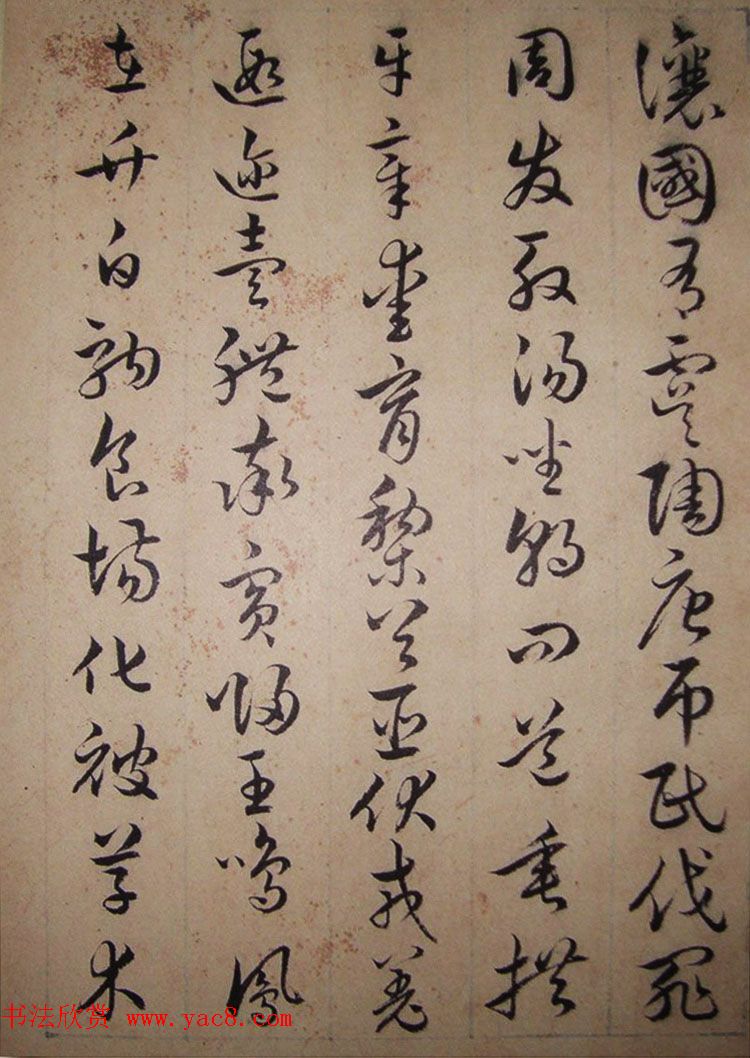 讓國有虞陶唐吊民伐罪
周發殷湯坐朝問道垂拱
平章愛育黎首臣伏戎羌
遐邇壹體率賓歸王鳴鳳
在竹白駒食場化被草木
书法欣赏 www.yac8.com